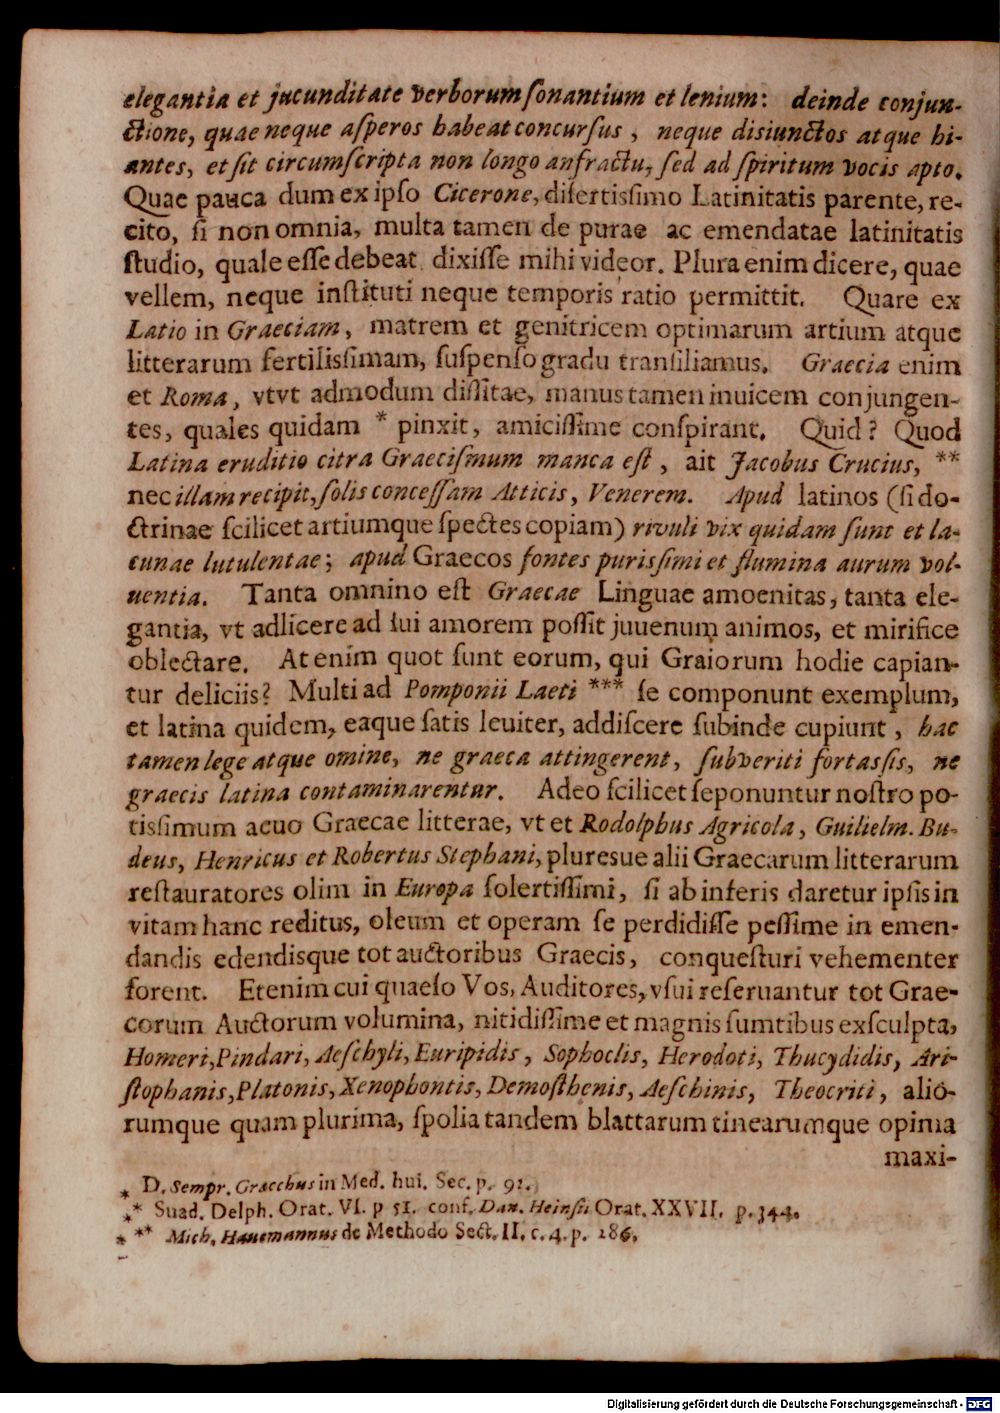 elegantia et jucunditate verborum ſonantium et lenium: deinde conjun-
ctione, quae neque aſperos habeat concurſus, neque disiunctos atque hi-
antes, et ſit circumſcripta non longo anfractu, ſed ad ſpiritum vocis apto.
Quae pauca dum ex ipſo Cicerone, diſertiſſimo Latinitatis parente, re-
cito, ſi non omnia, multa tamen de purae ac emendatae latinitatis
ſtudio, quale eſſe debeat dixiſſe mihi videor. Plura enim dicere, quae
vellem, neque inſtituti neque temporis ratio permittit. Quare ex
Latio in Graeciam, matrem et genitricem optimarum artium atque
litterarum fertilisſimam, ſuſpenſo gradu tranſiliamus. Graecia enim
et Roma, vtvt admodum diſſitae, manus tamen inuicem conjungen-
tes, quales quidam * pinxit, amiciſſime conſpirant. Quid? Quod
Latina eruditio citra Graeciſmum manca eſt, ait Jacobus Crucius, **
nec illam recipit, ſolis conceſſam Atticis, Venerem. Apud latinos (ſi do-
ctrinae ſcilicet artiumque ſpectes copiam) rivuli vix quidam ſunt et la-
cunae lutulentae; apud Graecos fontes purisſimi et flumina aurum vol-
uentia. Tanta omnino eſt Graecae Linguae amoenitas, tanta ele-
gantia, vt adlicere ad ſui amorem poſſit juuenum animos, et mirifice
oblectare. At enim quot ſunt eorum, qui Graiorum hodie capian-
tur deliciis? Multi ad Pomponii Laeti *** ſe componunt exemplum,
et latina quidem, eaque ſatis leuiter, addiſcere ſubinde cupiunt, hac
tamen lege atque omine, ne graeca attingerent, ſubveriti fortasſis, ne
graecis latina contaminarentur. Adeo ſcilicet ſeponuntur noſtro po-
tisſimum aeuo Graecae litterae, vt et Rodolphus Agricola, Guilielm. Bu-
deus, Henricus et Robertus Stephani, pluresue alii Graecarum litterarum
reſtauratores olim in Europa ſolertiſſimi, ſi ab inferis daretur ipſis in
vitam hanc reditus, oleum et operam ſe perdidiſſe peſſime in emen-
dandis edendisque tot auctoribus Graecis, conqueſturi vehementer
forent. Etenim cui quaeſo Vos, Auditores, vſui reſeruantur tot Grae-
corum Auctorum volumina, nitidiſſime et magnis ſumtibus exſculpta,
Homeri, Pindari, Aeſchyli, Euripidis, Sophoclis, Herodoti, Thucydidis, Ari-
ſtophanis, Platonis, Xenophontis, Demoſthenis, Aeſchinis, Theocriti, alio-
rumque quam plurima, ſpolia tandem blattarum tinearumque opima
maxi-
* D. Sempr. Gracchus in Med. hui. Sec. p. 91.
** Suad. Delph. Orat. VI. p 51. conf. Dan. Heinſii Orat. XXVII. p. 344.
*** Mich. Hauemannus de Methodo Sect. II. c. 4. p. 186.
Digitalisierung gefördert durch die Deutsche Forschungsgemeinschaft - DFG